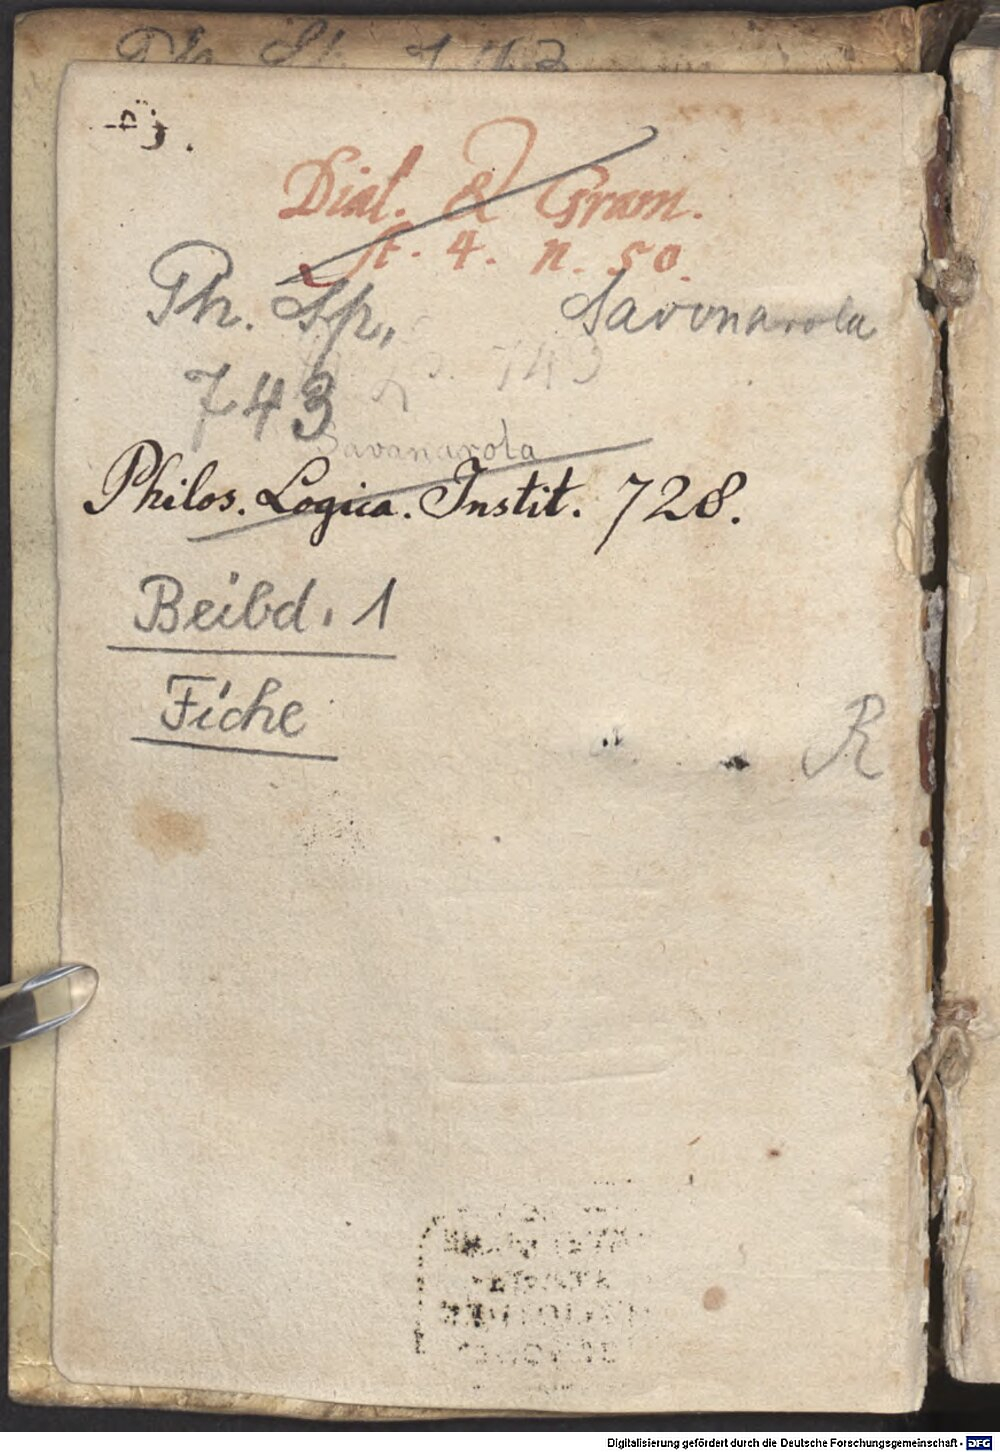 Ph. Sp. 743
Dial. & Gram.
st. 4. n. 50.
Ph. Sp. Savonarola
743
Savonarola
Philos. Logica. Instit. 728.
Beibd. 1
Fiche
R
Digitalisierung gefördert durch die Deutsche Forschungsgemeinschaft - DFG